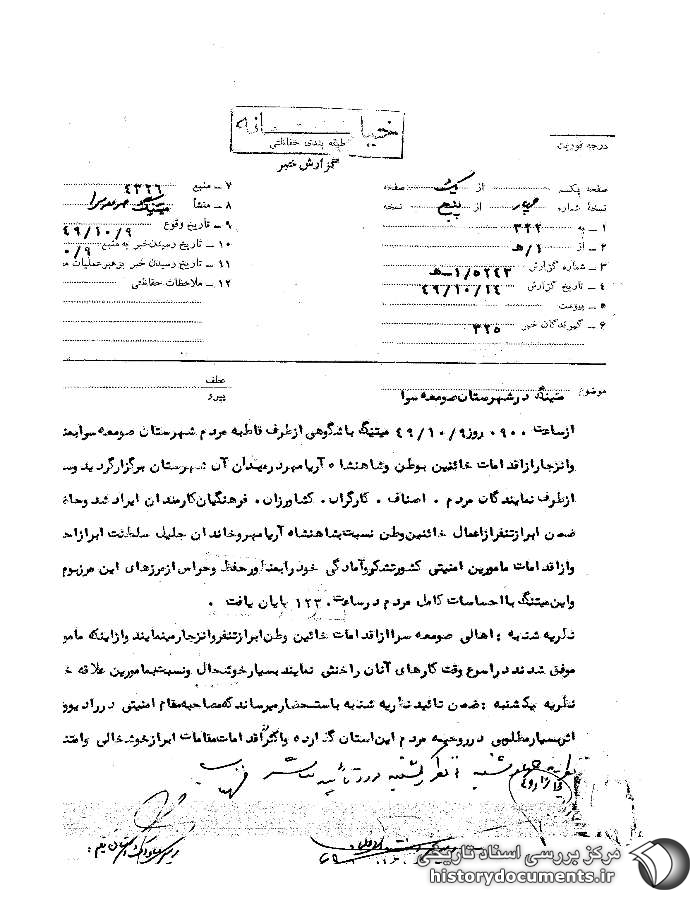 خیلی محرمانه
طبقه بندی حفاظتی
درجه فوریت
گزارش خبر
صفحه یکم از یک صفحه
نسخهٔ شماره چهار از پنج نسخه
۱ – به ۳۲۲
۲ – از ۱/ ه‍
۳ – شماره گزارش ۵۲۴۳/ ۱– ه‍
۴ – تاریخ گزارش ۴۹/۱۰/۱۴
۵ – پیوست
۶ – گیرندگان خبر ۳۲۵
۷ – منبع ۴۳۲۶
۸ – منشأ میتینگ صومعه سرا
۹ – تاریخ وقوع ۴۹/۱۰/۹
۱۰ – تاریخ رسیدن خبر به منبع ۰/۹
۱۱ – تاریخ رسیدن خبر برهبر عملیات
۱۲ – ملاحظات حفاظتی
موضوع میتینگ در شهرستان صومعه سرا
عطف
پیرو
ازساعت ۰۹۰۰ روز ۴۹/۱۰/۹ میتینگ باشکوهی ازطرف قاطبه مردم شهرستان صومعه سرا
وانزجار ازاقدامات خائنین بوطن وشاهنشاه آریامهر در میدان آن شهرستان برگزار گردید
ازطرف نمایندگان مردم . اصناف . کارگران . کشاورزان . فرهنگیان کارمندان ایراد شد
ضمن ابراز تنفر ازاعمال خائنین وطن نسبت بشاهنشاه آریامهر وخاندان جلیل سلطنت ابراز
وازاقدامات مامورین امنیتی کشور تشکر وآمادگی خود را بمنظور حفظ وحراس ازمرزهای این مرزبوم
واین میتنگ بااحساسات کامل مردم در ساعت ۱۲۳۰ پایان یافت .
نظریه شنبه : اهالی صومعه سرا ازاقدامات خائنین وطن ابراز تنفر وانزجار مینمایند وازاینکه
موفق شدند در اسرع وقت کارهای آنان راخنثی نمایند بسیار خوشحال ونسبت بمامورین علاقه
نظریه یکشنبه : ضمن تائید نظریه شنبه باستحضار میرساند که مصاحبه مقام امنیتی در رادیو
اثر بسیار مطلوبی در روحیه مردم این استان گذارده واکثر اقدامات مقامات ابراز خوشحالی
نظریه چهارشنبه نظر یکشنبه مورد تأیید است
مرکز بررسی اسناد تاریخی
historydocuments.ir